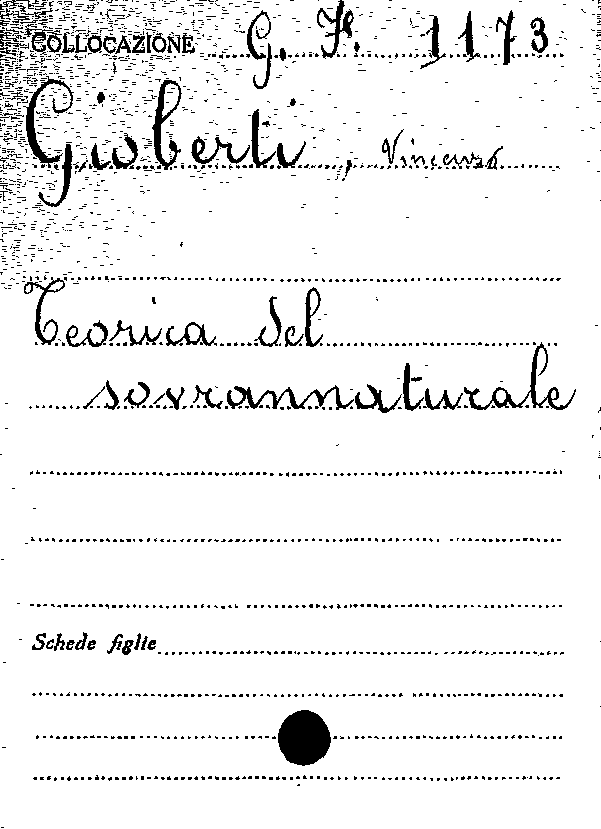 COLLOCAZIONE G. F. 1173
Gioberti, Vincenzo
Teorica del
sovrannaturale
Schede figlie